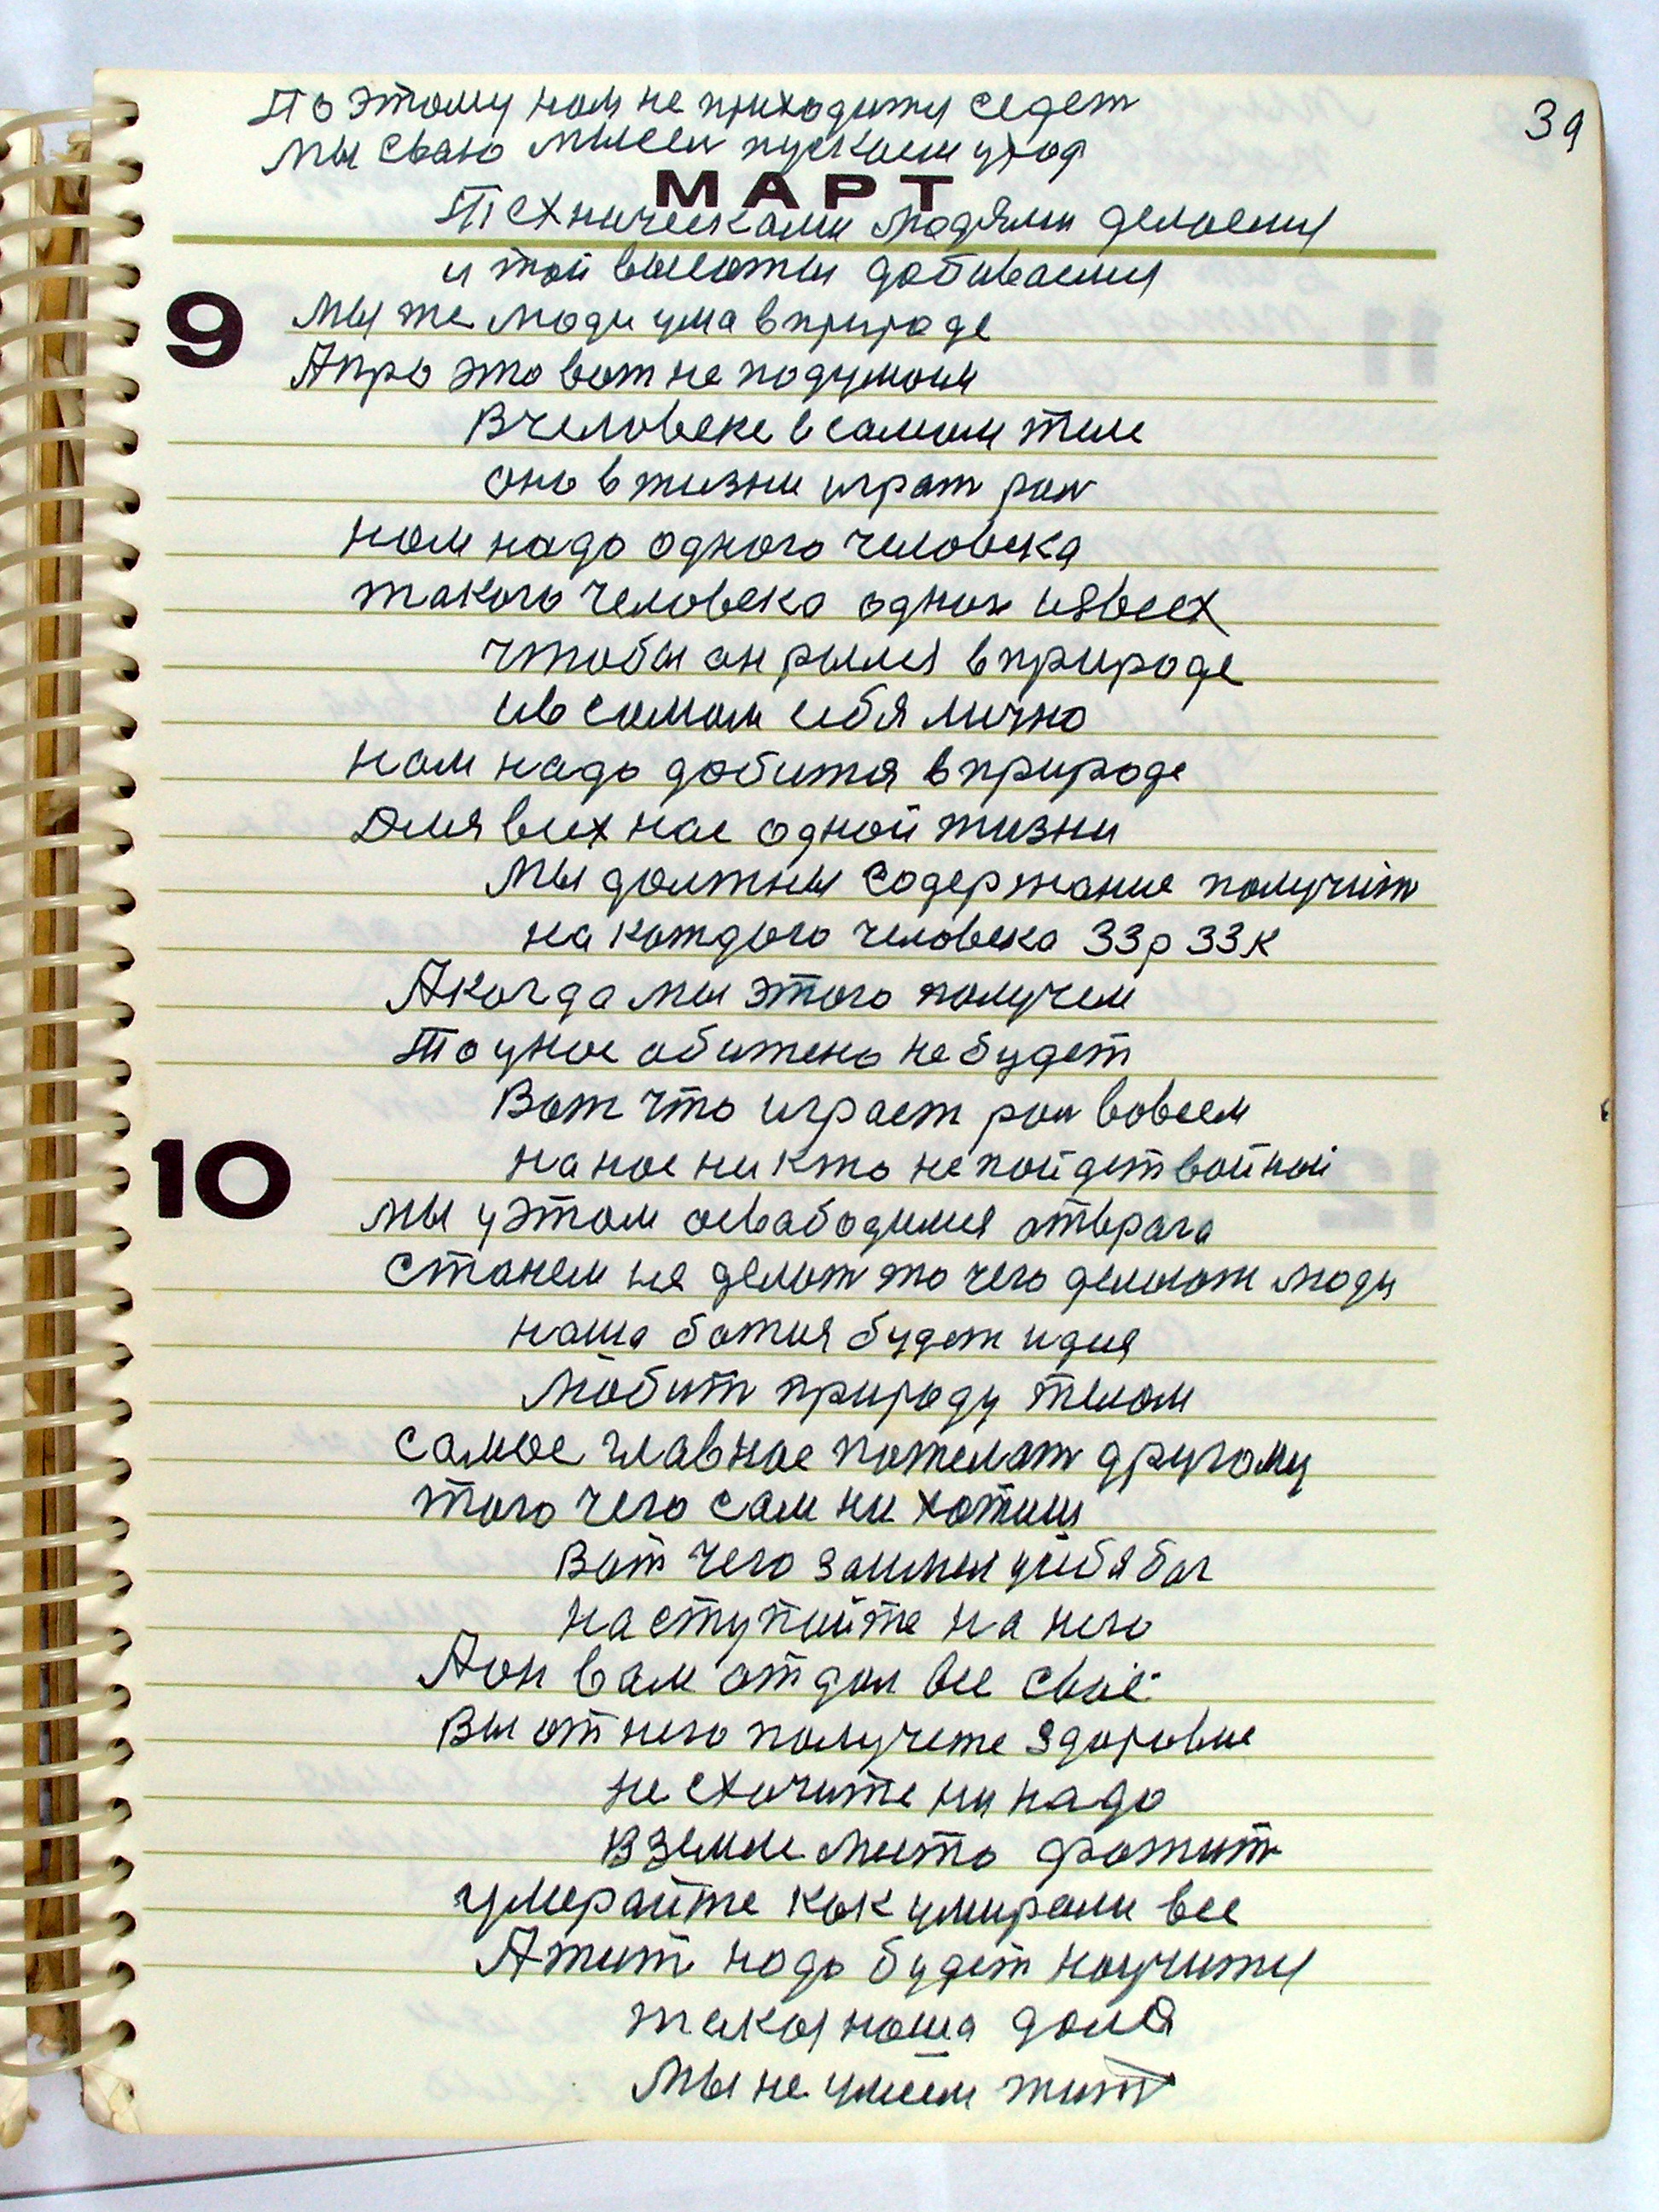 39
По этому нам не приходится седет
мы сваю мысел пускаем уход
МАРТ
Техническами людями делаемся
и той высоты добиваемся
9
мы же люди ума в природе
А про это вот не подумали
В человеке в самим теле
оно в жизни играт рол
нам надо одного человека
такого человека одних из всех
чтобы он рылся в природе
и в самом себя лично
нам надо добится в природе
Для всех нас одной жизни
мы должны содержание получит
на каждого человека 33р 33к
А когда мы этого получем
То у нас обижено не будет
Вот что играет рол во всем
10
на нас ни кто не пойдет войной
мы у этом освабодимся от врага
станем не делат то чего делают люди
наша божия будет идия
любит природу телом
самое главное пожелат другому
того чего сам ни хотиш
Вот чего заимел у себя бог
на ступайте на него
А он вам отдал все своё
Вы от него получете здоровие
не схочите ни надо
В земле место
умерайте как умирали все
А жит надо будет научится
такая наша доля
мы не умеем жит